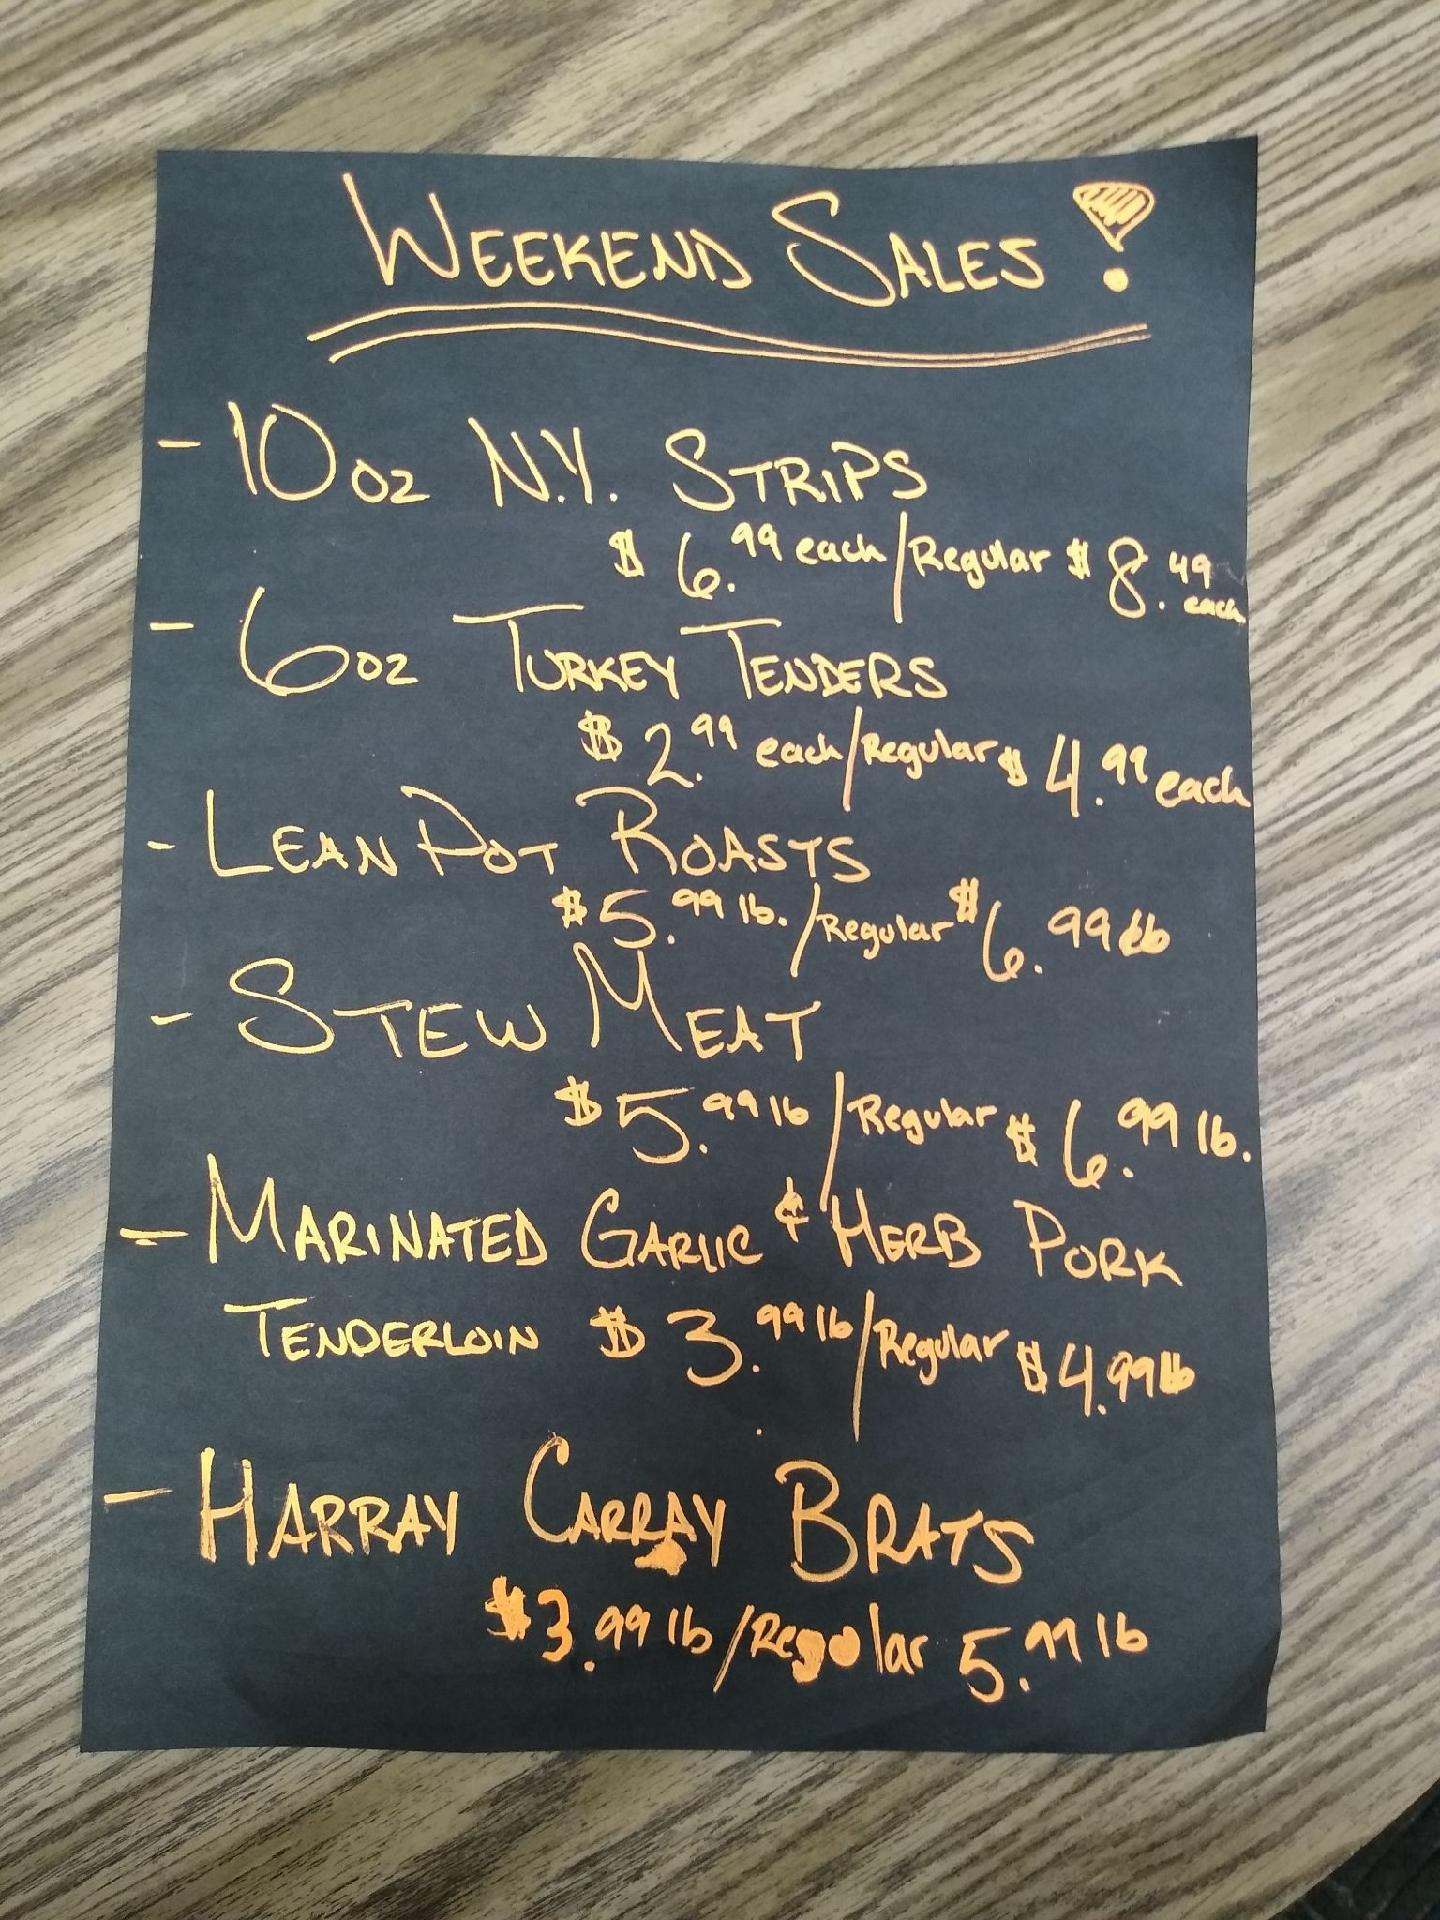 WEEKEND SALES!
- 10 oz N.Y. STRIPS
$6.99 each/Regular $8.49 each
- 6 oz TURKEY TENDERS
$2.99 each/Regular $4.99 each
- LEAN POT ROASTS
$5.99 lb./Regular $6.99 lb
- STEW MEAT
$5.99 lb/Regular $6.99 lb.
- MARINATED GARLIC & HERB PORK
TENDERLOIN $3.99 lb/Regular $4.99 lb
- HARRAY CARRAY BRATS
$3.99 lb/Regular 5.99 lb